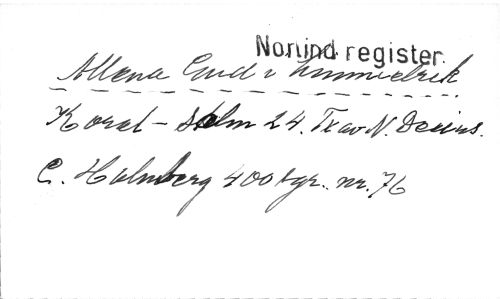 Nonind register.
Allena Gud i himmelrik
Koral-Salm 24. Tx av N. Decius.
C. Holmberg 400 tyr. nr. 76